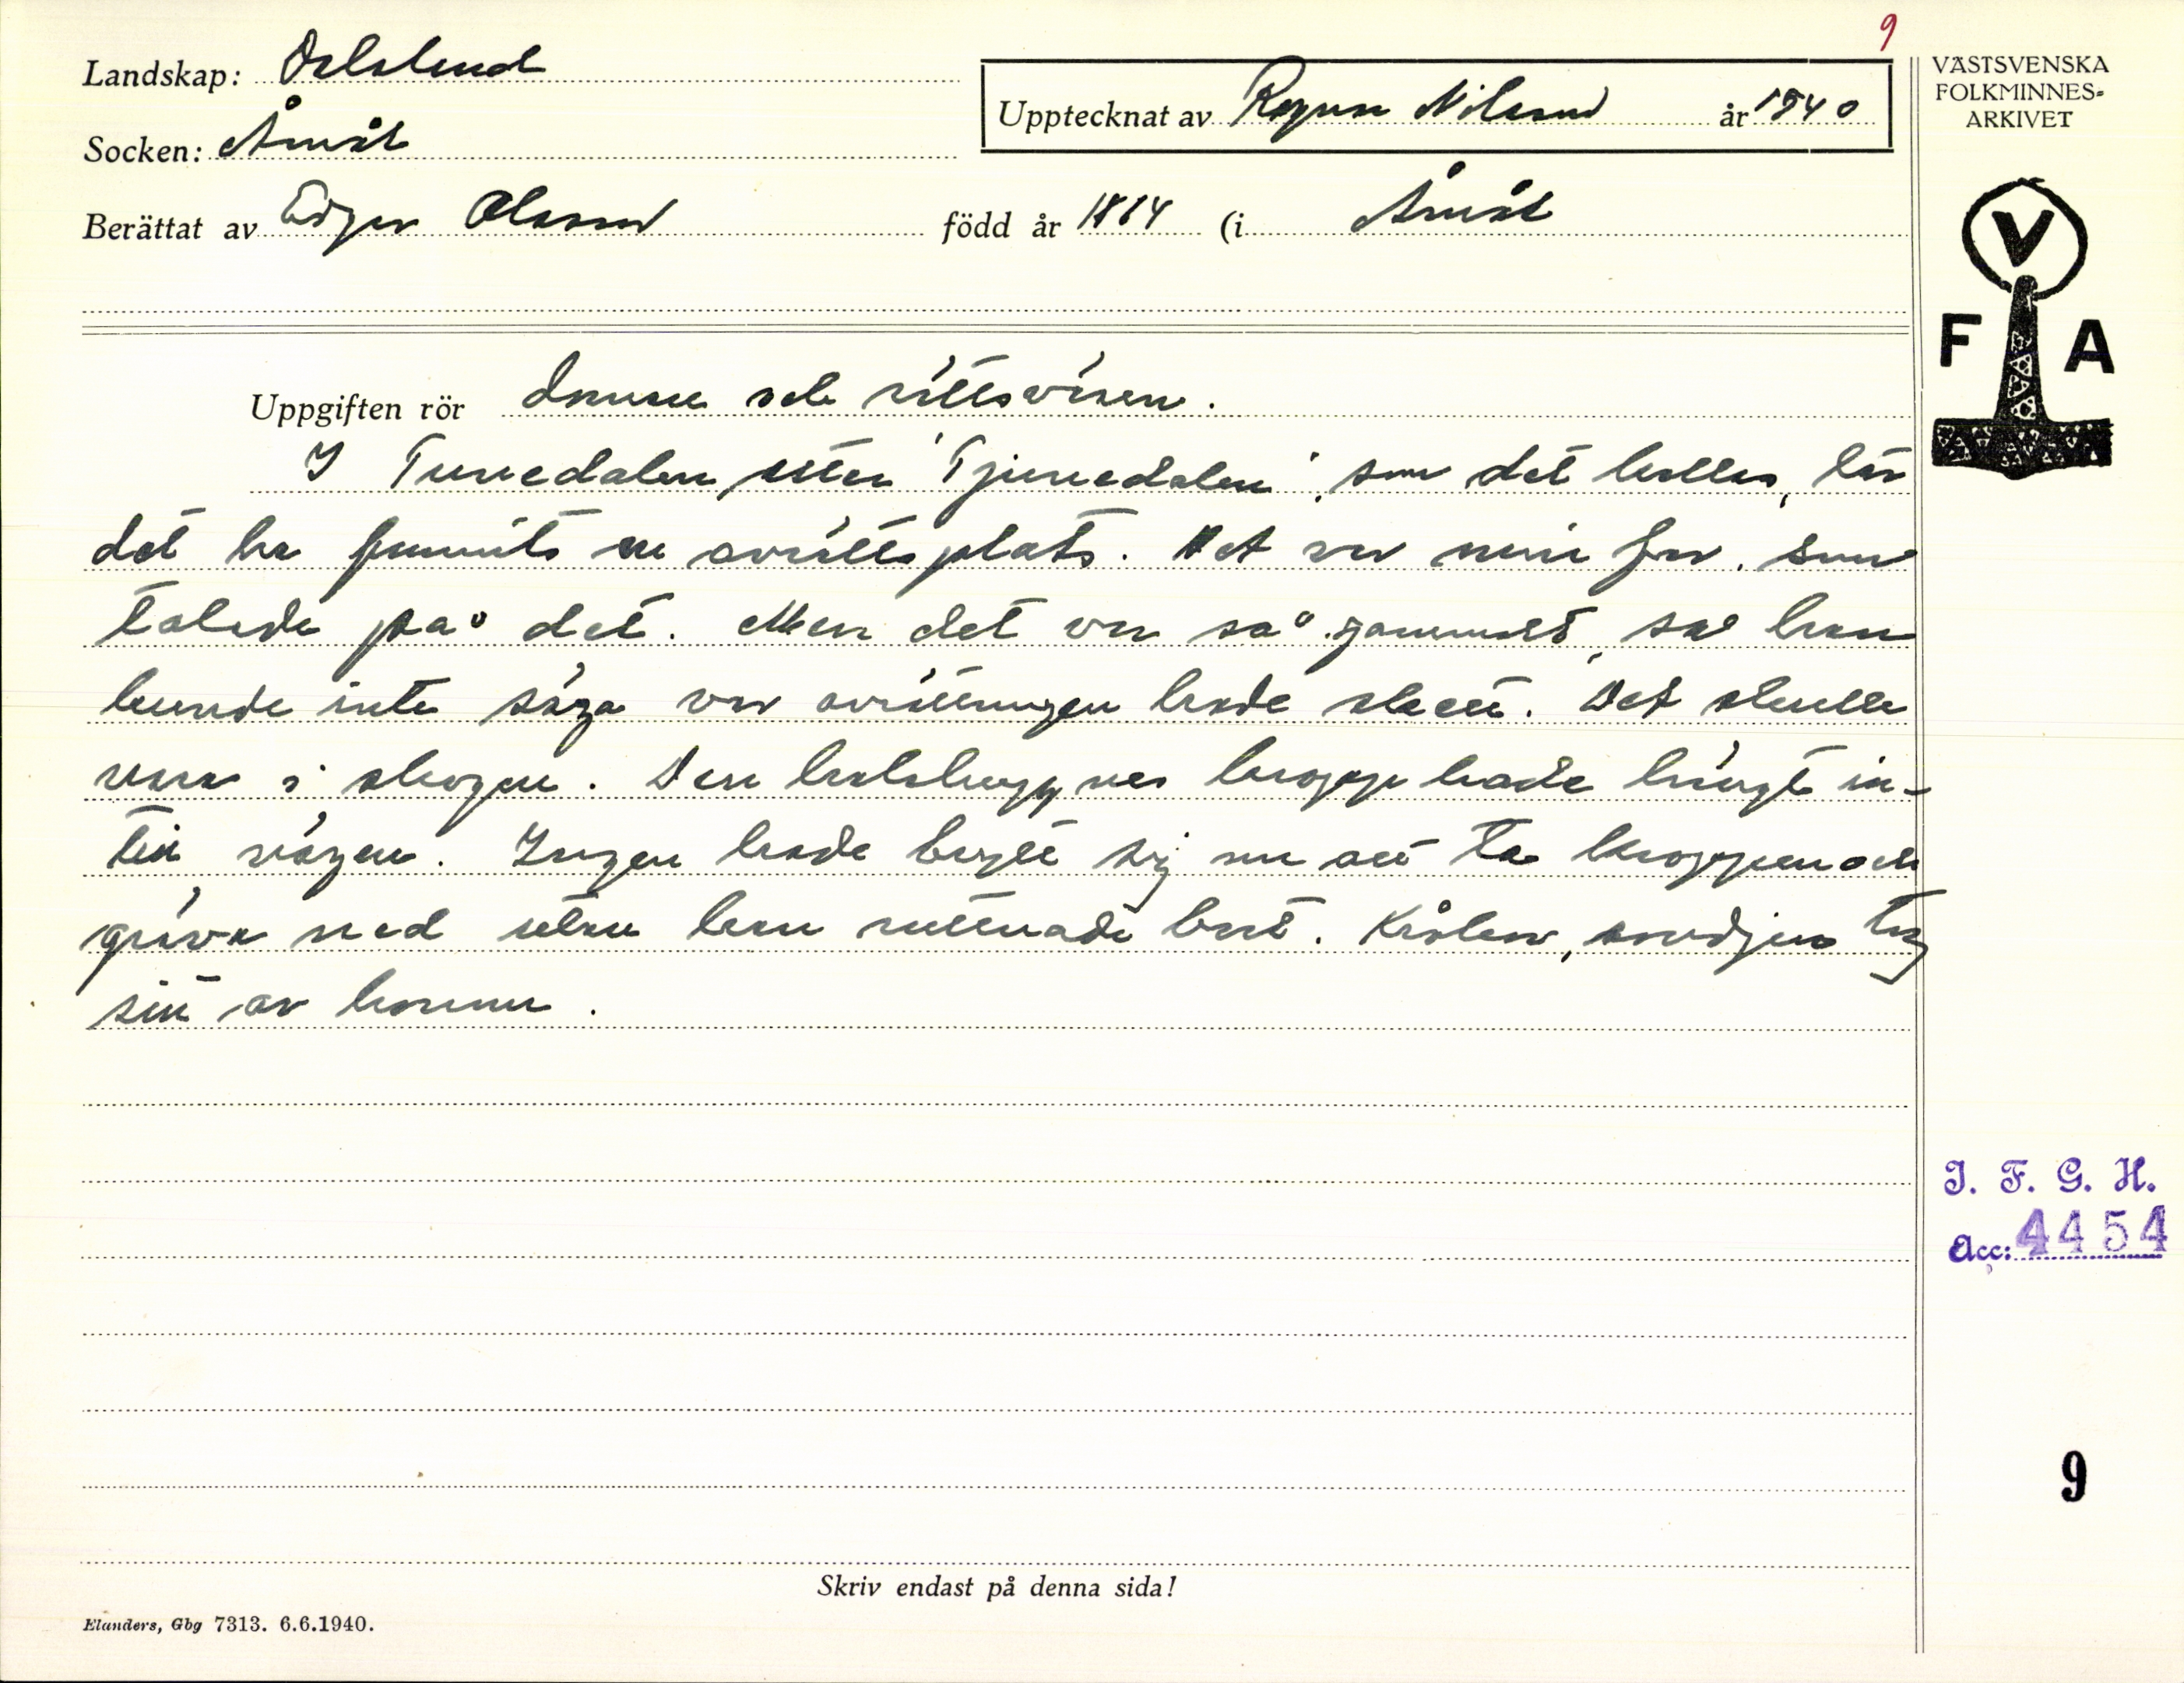 9
Landskap: Dalsland
Socken: Åmål
Upptecknat av Ragnar Nilsson år 1940
Berättat av Edgar Olsson född år 1884 (i Åmål
VÄSTSVENSKA
FOLKMINNES-
ARKIVET
V
F A
Uppgiften rör domare och rättsväsen.
I Tunedalen, eller "Tjunedalen", som det kallas, lär
det ha funnits en avrättsplats. Det var min far, som
talade på det. Men det var så gammalt, så han
kunde inte säga var avrättningen hade skett. Det skulle
vara i skogen. Den halshuggnes kropp hade hängt in-
till vägen. Ingen hade brytt sig om att ta kroppen och
gräva ned utan han ruttnade bort. Kråkor, smådjur tog
sitt av honom.
I. F. G. H.
Acc: 4454
9
Skriv endast på denna sida!
Elanders, Gbg 7313. 6.6.1940.